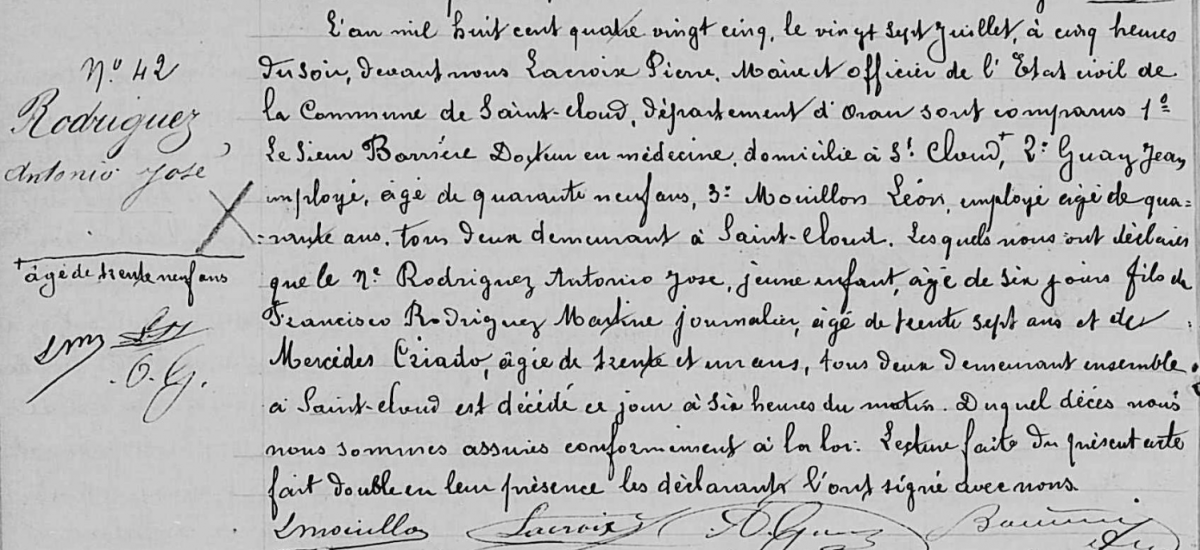 N.º 42
Rodriguez
Antonio José
+ âgé de trente neuf ans
O.G.
L'an mil huit cent quatre vingt cinq, le vingt sept Juillet, à cinq heures
du soir, devant nous Lacroix Pierre, Maire et officier de l'Etat civil de
la Commune de Saint-Cloud, département d'Oran sont comparus 1º
Le Sieur Barrière Docteur en médecine, domicilié à St Cloud,+ 2º Guay Jean
employé, âgé de quarante neuf ans, 3º Mouillon Léon, employé âgé de qua=
=rante ans, tous deux demeurant à Saint-Cloud. Lesquels nous ont déclarés
que le né Rodriguez Antonio Jose, jeune enfant, âgé de six jours fils de
Francisco Rodriguez Martine journalier, âgé de trente sept ans et de
Mercédes Criado, âgée de trente et un ans, tous deux demeurant ensemble
à Saint-Cloud est décédé ce jour à six heures du matin. Duquel décès nous
nous sommes assurés conformément à la loi. Lecture faite du présent acte
fait double en leur présence les déclarants l'ont signé avec nous.
LMouillon Lacroix